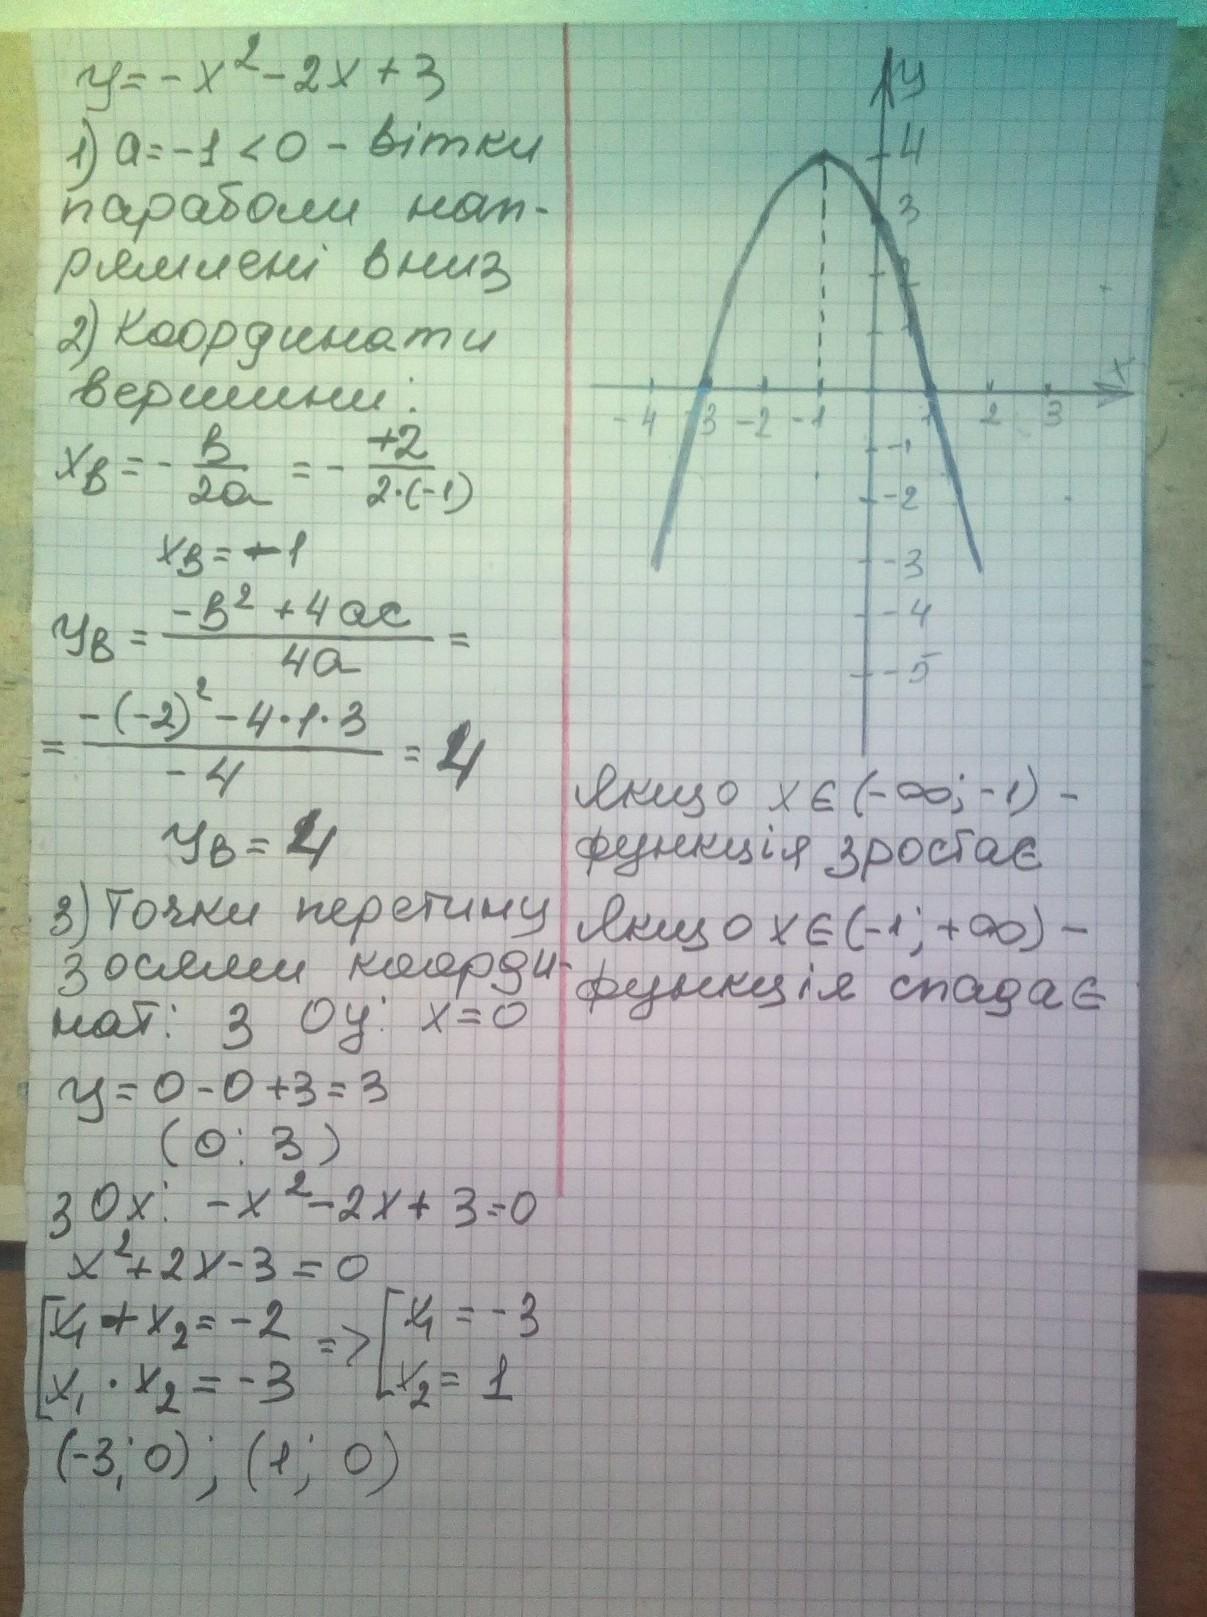 y = -x² - 2x + 3
1) a = -1 < 0 - вітки
параболи нап-
рямлені вниз
2) Координати
вершини:
xв = - в/2a = - +2/2·(-1)
xв = -1
yв = -в² + 4ac/4a =
= -(-2)² - 4·1·3/-4 = 4
yв = 4
3) Точки перетину
з осями коорди-
нат: з Oy: x = 0
y = 0 - 0 + 3 = 3
(0; 3)
з Ox: -x² - 2x + 3 = 0
x² + 2x - 3 = 0
[x₁ + x₂ = -2 => [x₁ = -3
[x₁ · x₂ = -3 [x₂ = 1
(-3; 0); (1; 0)
y
4
3
2
1
x
-4 -3 -2 -1 1 2 3
-1
-2
-3
-4
-5
Якщо x ∈ (-∞; -1) -
функція зростає
Якщо x ∈ (-1; +∞) -
функція спадає